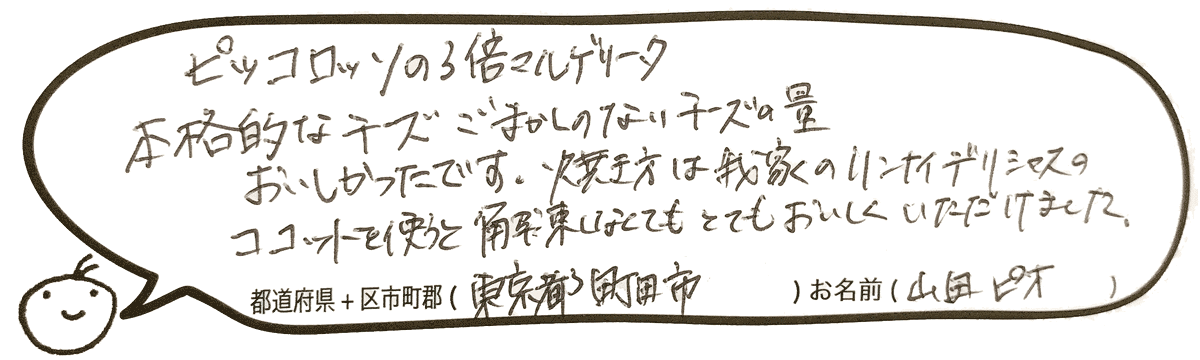 ピッコロッソの3倍マルゲリータ
本格的なチーズ ごまかしのないチーズの量
おいしかったです。焼き方は我家のリンナイデリシャスの
ココットを使うと解凍しなくてもとてもおいしくいただけました。
都道府県+区市町郡(東京都町田市)お名前(山田ピオ)